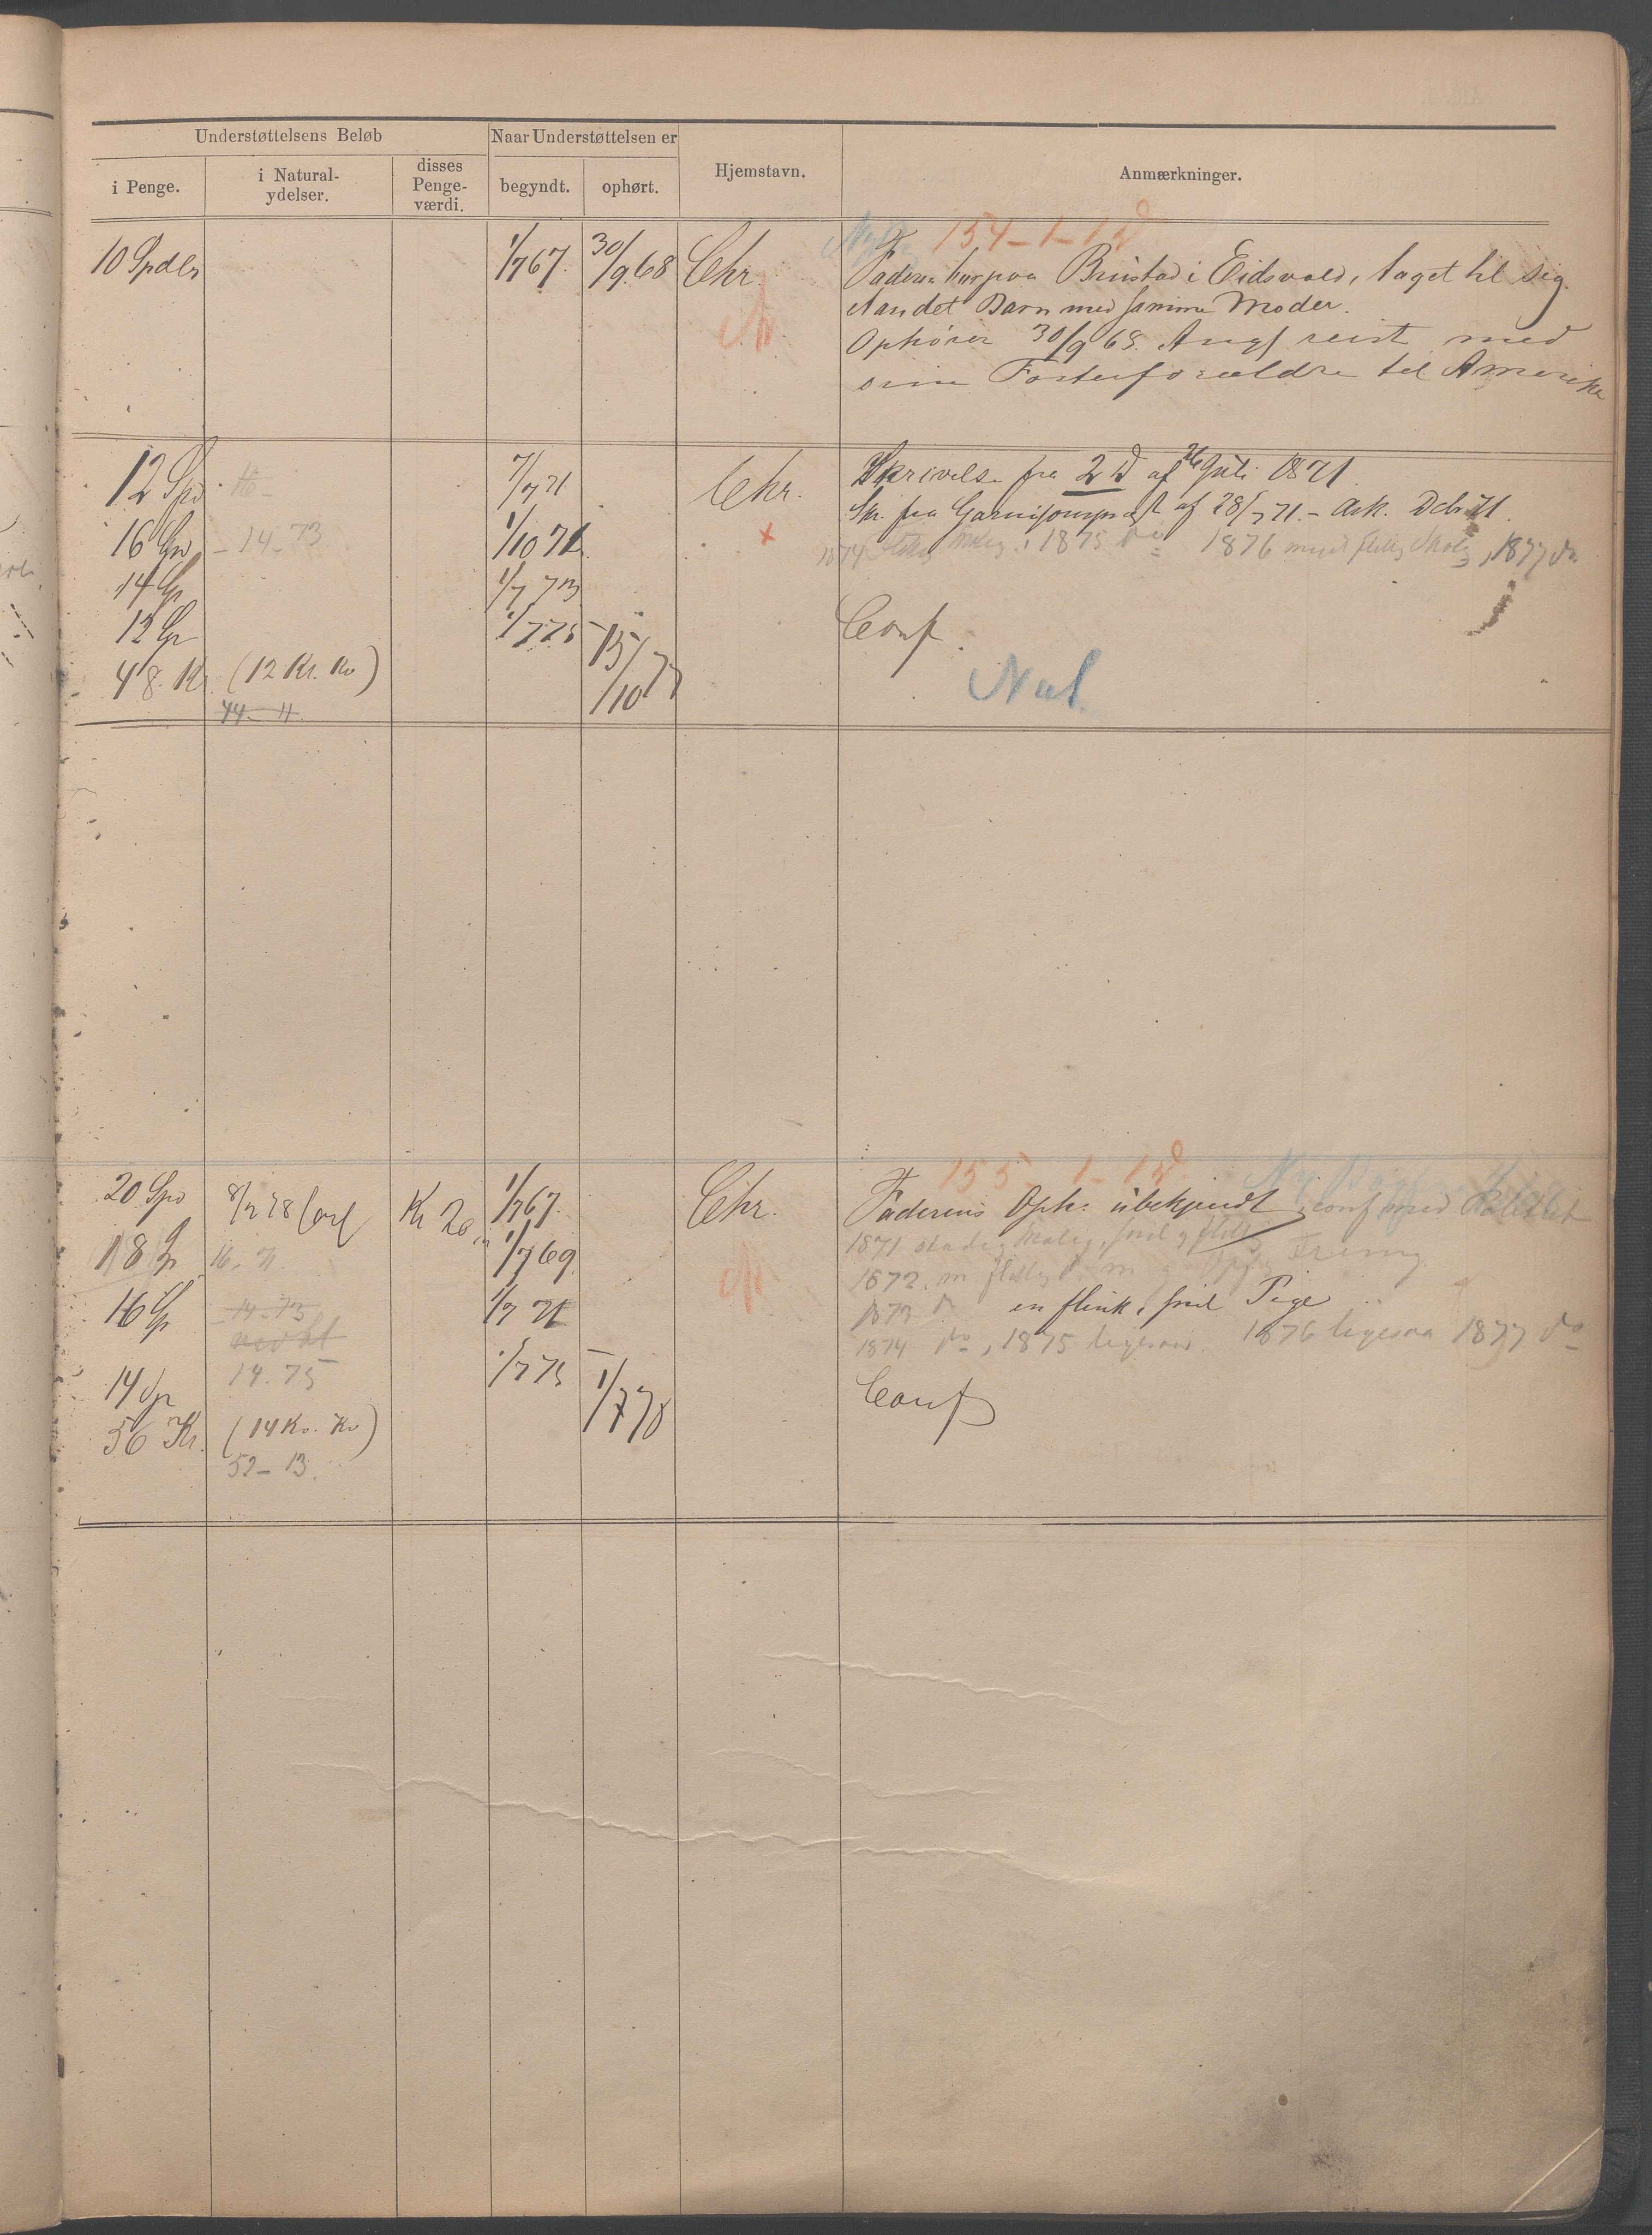 Understøttelsens Beløb
Naar Understøttelsen er
i Penge.
i Natural-
ydelser.
disses
Penge-
værdi.
begyndt.
ophørt.
Hjemstavn.
Anmærkninger.
154-1-1 d
10 Spdlr
1/7 67.
30/9 68
Chr.
Faderen bor paa Brustad i Eidsvold, taget til sig
et andet Barn med samme Moder.
Ophører 30/9 68. Angf reist med
sine Fosterforældre til Amerika
12 Spd
7/7 71
Chr.
Skrivelse fra 2 d af 26 Juli 1871
16 Sp
- 14-73
1/10 71
Skr. fra Garnisonspræst af 28/7 71. - Ark. Dcb 71
1874 1875 do 1876 med flittig Skoleg, 1877 do
14 Sp
1/7 73
12 Sp
1/7 75
15/10 77
Conf.
48 Kr.
(12 Kr. Kv)
44-11
Nul.
155-1-1 d.
20 Spd
8/2 78 Conf
Kr 20
1/7 67.
Chr.
Faderens Oph. ubekjendt, conf med
18 Sp
16. 71
1/7 69
1871 stadig Skoleg, snil og flittig
1872. m flittig
16 Sp
14-73
1/7 71
1873 do en flink, snil Pige
1874 do, 1875 ligesaa. 1876 ligesaa 1877 do
14 Sp
14. 75
1/7 75
1/7 78
Conf
56 Kr.
(14 Kr. Kv)
52-13.